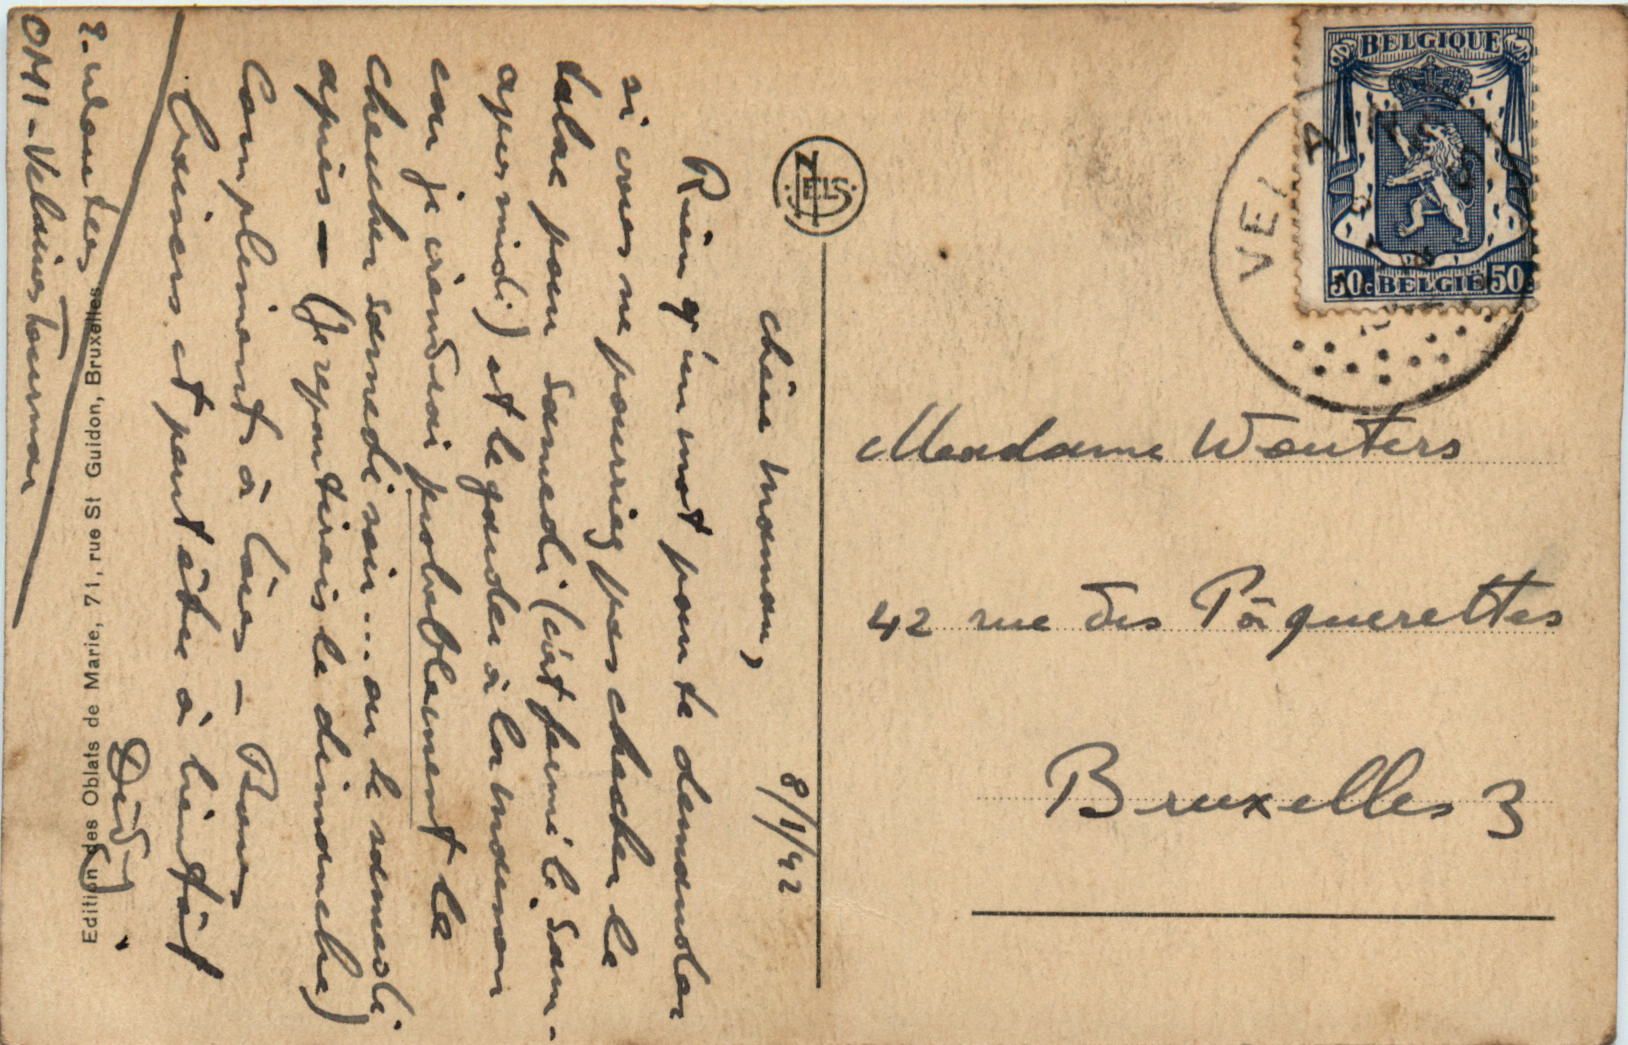 8/1/42
chère maman,
Rien q'un mot pour te demander
si vous ne pourriez pas chercher le
tabac pour samedi (c'est fermé le sam-
apersmidi) et le garder à la maison
car je viendrai probablement le
chercher samedi soir... ou le samedi
après - (je repartirais le dimanche)
Compliments à tous - Bons
baisers et peut être à bientôt
Dédy.
OMI - Velaines Tournai
Edition des Oblats de Marie, 71, rue St Guidon, Bruxelles
NELS
BELGIQUE
50c BELGIË 50c
VEL A
Madame Wouters
42 rue des Pâquerettes
Bruxelles 3